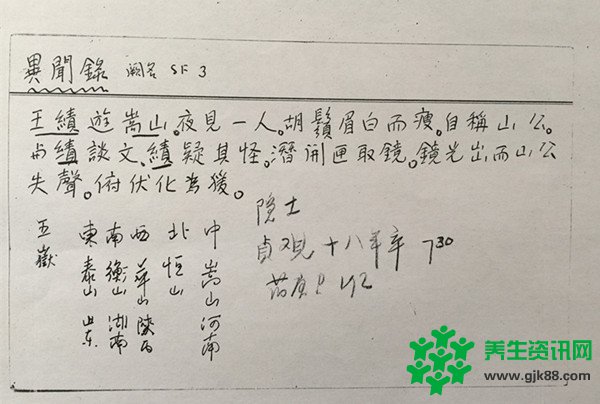 異聞錄 闕名 SF 3
王績遊嵩山。夜見一人。胡鬚眉白而瘦。自稱山公。
与績談文。績疑其怪。潛開匣取鏡。鏡光出而山公
失聲。俯伏化為猨。
五嶽
東 泰山 山东
南 衡山 湖南
西 華山 陝西
北 恒山
中 嵩山 河南
隐士
貞观十八年卒
养生资讯网
www.gjk88.com